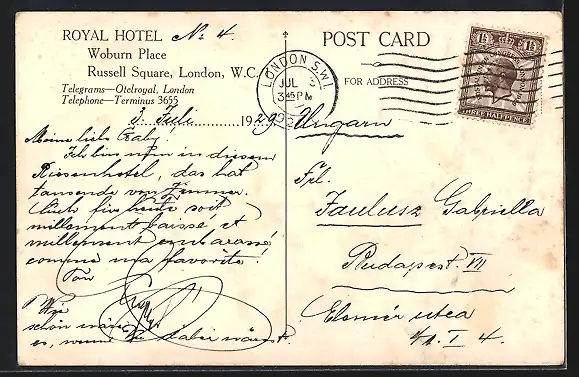 ROYAL HOTEL No 4.
Woburn Place
Russell Square, London, W.C.
Telegrams—Otelroyal, London
Telephone—Terminus 3655
3. Juli 1929
Meine liebe Gaby!
Ich bin nun in diesem
Riesenhotel, das hat
tausende von Zimmer.
Auch für heute soit
millement baissé, et
millement embarassé
comme ma favorite!
Ton
Wie
schön wäre
es, wenn Du dabei wärest.
POST CARD
FOR ADDRESS
LONDON S.W.1.
JUL
3 45 PM
THREE HALFPENCE
Ungarn
Frl.
Faulusz Gabriella
Budapest. VII
Elemér utca
41. I 4.